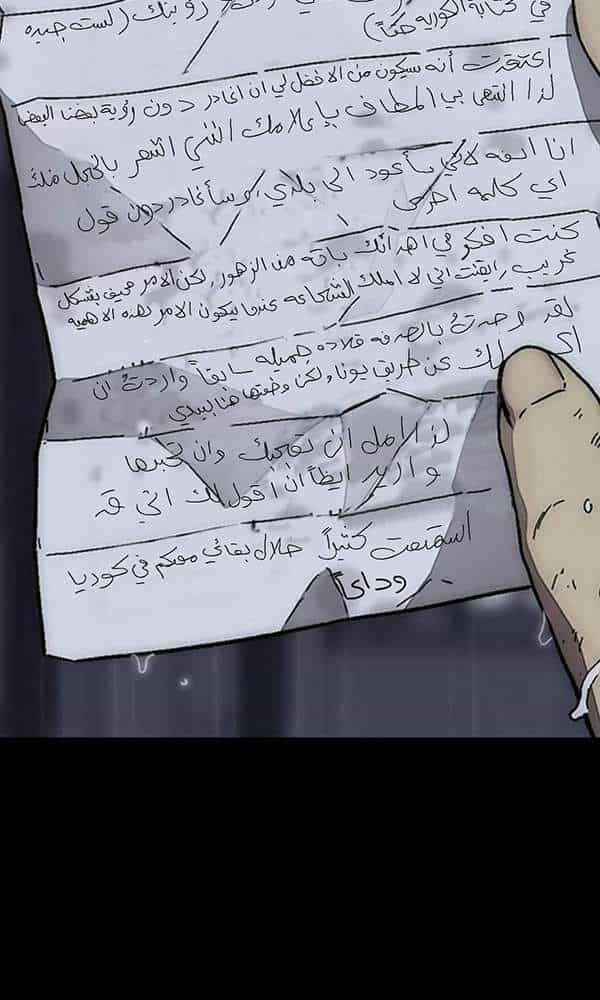 رؤيتك (لست جيده
في كتابة الكوريه هكذا)
اعتقدت أنه سيكون من الافضل لي ان اغادر دون رؤية بعضنا البعض
لذا انتهى بي المطاف بإعلامك انني اشعر بالخجل منك
انا اسفه لانني سأعود الى بلدي، وسأغادر دون قول
اي كلمه اخرى
كنت افكر في اهدائك باقه من الزهور, لكن الامر مخيف بشكل
غريب, ايقنت اني لا املك الشجاعه عندما يكون الامر بهذه الاهميه
لقد وجدتُ بالصدفه قلاده جميله سابقاً واردتُ ان
لك عن طريق يونا, ولكن وضعتها هنا بيدي
لذا آمل ان تعجبك وان تخبرها
واريد ايضاً ان أقول لك اني قد
استمتعت كثيراً خلال بقائي معكم في كوريا
وداعاً..